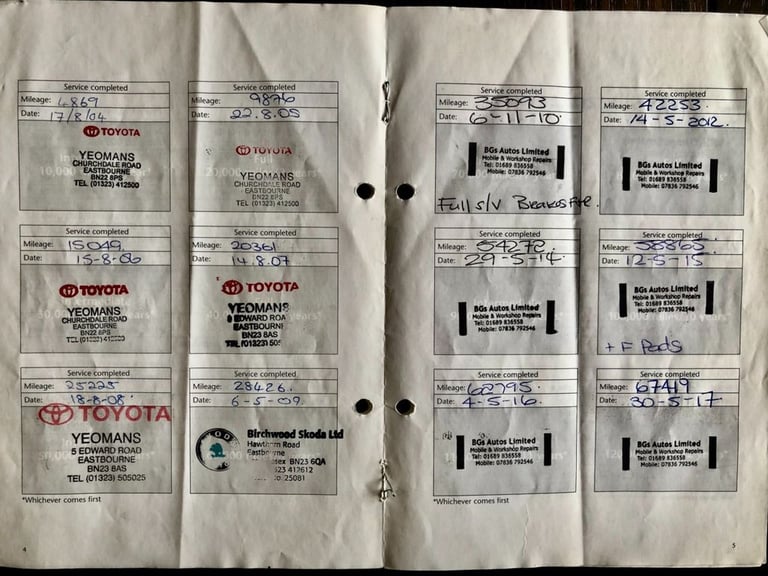 Service completed
Mileage: 4869
Date: 17/8/04
TOYOTA
YEOMANS
CHURCHDALE ROAD
EASTBOURNE
BN22 8PS
TEL (01323) 412500
Service completed
Mileage: 9876
Date: 22.8.05
TOYOTA
YEOMANS
CHURCHDALE ROAD
EASTBOURNE
BN22 8PS
TEL (01323) 412500
Service completed
Mileage: 15049.
Date: 15-8-06
TOYOTA
YEOMANS
CHURCHDALE ROAD
EASTBOURNE
BN22 8PS
Service completed
Mileage: 20361
Date: 14.8.07
TOYOTA
YEOMANS
EDWARD ROAD
EASTBOURNE
BN23 8AS
TEL (01323) 505
Service completed
Mileage: 25225
Date: 18-8-08
TOYOTA
YEOMANS
5 EDWARD ROAD
EASTBOURNE
BN23 8AS
TEL (01323) 505025
Service completed
Mileage: 28426.
Date: 6-5-09.
Birchwood Skoda Ltd
Road
BN23 6QA
412612
25081
*Whichever comes first
4
Service completed
Mileage: 35093
Date: 6-11-10
BGs Autos Limited
Mobile & Workshop Repairs
Tel: 01689 836558
Mobile: 07836 792546
Full s/v
Service completed
Mileage: 42253.
Date: 14-5-2012.
BGs Autos Limited
Mobile & Workshop Repairs
Tel: 01689 836558
Mobile: 07836 792546
Service completed
Mileage: 54272
Date: 29-5-14
BGs Autos Limited
Mobile & Workshop Repairs
Tel: 01689 836558
Mobile: 07836 792546
Service completed
Mileage: 58865
Date: 12-5-15
BGs Autos Limited
Mobile & Workshop Repairs
Tel: 01689 836558
Mobile: 07836 792546
+ F Pads
Service completed
Mileage: 62795.
Date: 4-5-16.
BGs Autos Limited
Mobile & Workshop Repairs
Tel: 01689 836558
Mobile: 07836 792546
Service completed
Mileage: 67419
Date: 30-5-17
BGs Autos Limited
Mobile & Workshop Repairs
Tel: 01689 836558
Mobile: 07836 792546
*Whichever comes first
5